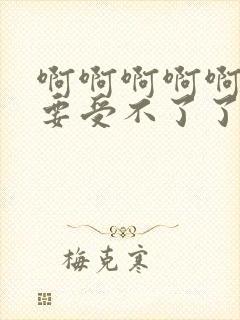 啊啊啊啊啊
要受不了了
梅克寒